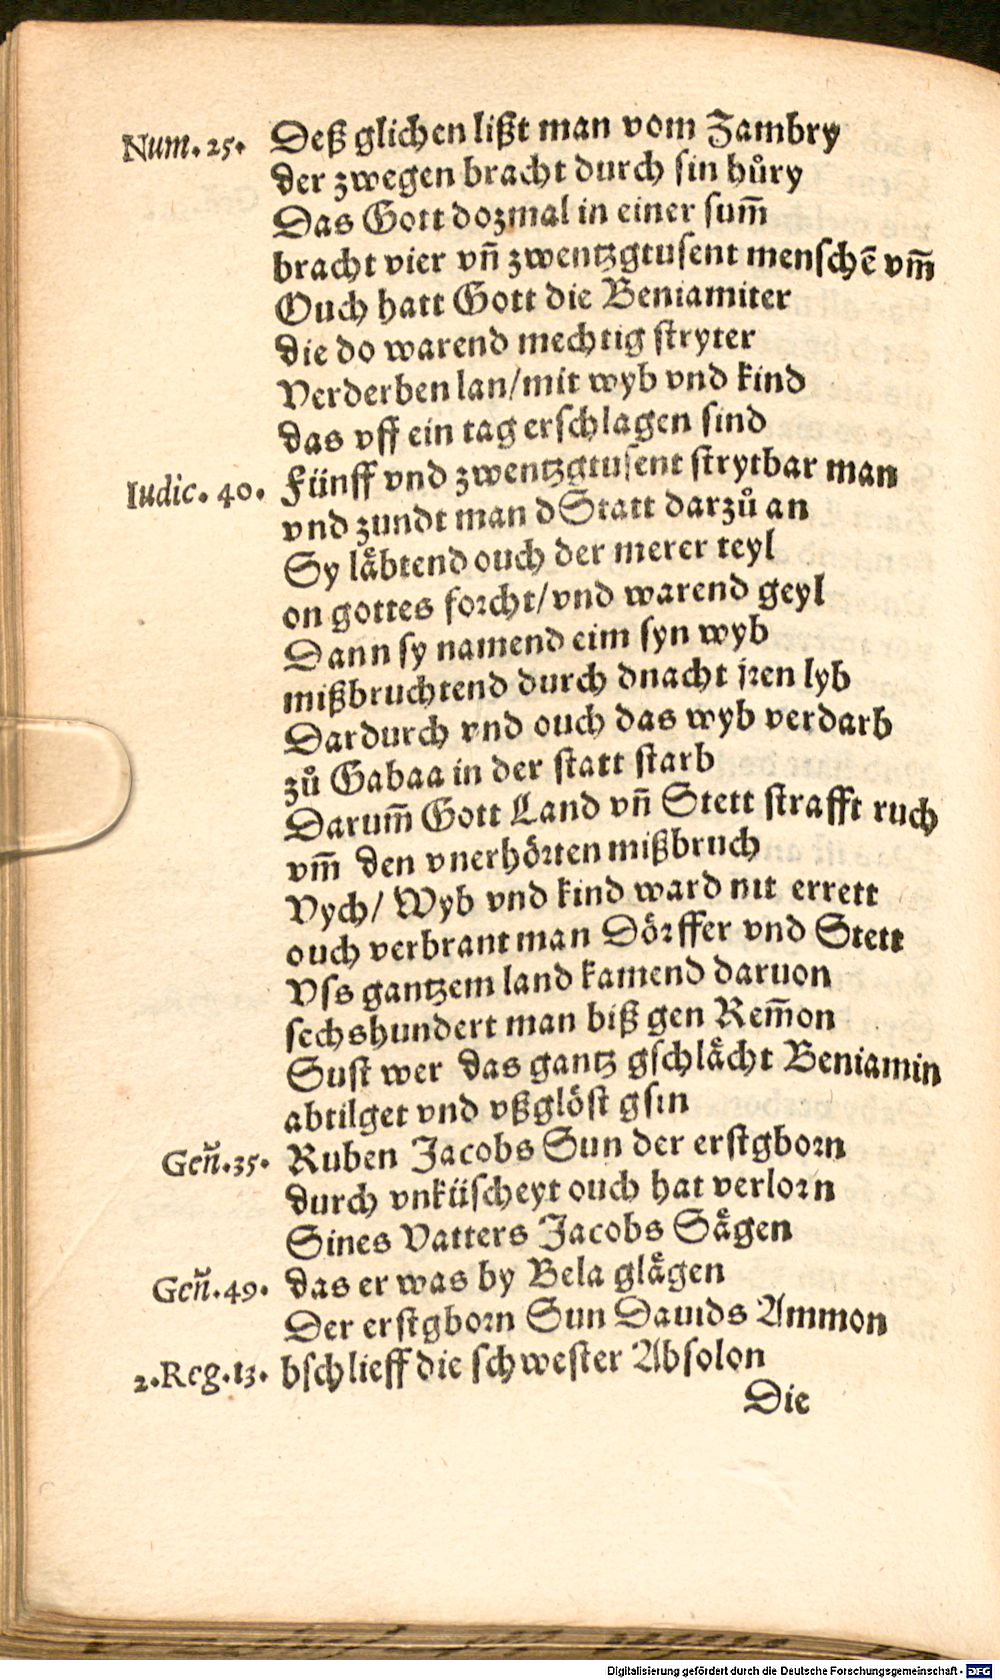 Num. 25. Deß glichen lißt man vom Zambry
der zwegen bracht durch sin hůry
Das Gott dozmal in einer sum̃
bracht vier vñ zwentzgtusent menschē vm̃
Ouch hatt Gott die Beniamiter
die do warend mechtig stryter
Verderben lan/mit wyb vnd kind
das vff ein tag erschlagen sind
Iudic. 40. Fünff vnd zwentzgtusent strytbar man
vnd zundt man dStatt darzů an
Sy låbtend ouch der merer teyl
on gottes forcht/vnd warend geyl
Dann sy namend eim syn wyb
mißbruchtend durch dnacht jren lyb
Dardurch vnd ouch das wyb verdarb
zů Gabaa in der statt starb
Darum̃ Gott Land vñ Stett strafft ruch
vm̃ den vnerhörten mißbruch
Vych/ Wyb vnd kind ward nit errett
ouch verbrant man Dörffer vnd Stett
Vss gantzem land kamend daruon
sechshundert man biß gen Rem̃on
Sust wer das gantz gschlåcht Beniamin
abtilget vnd vßglöst gsin
Geñ.35. Ruben Jacobs Sun der erstgborn
durch vnküscheyt ouch hat verlorn
Sines Vatters Jacobs Sågen
Geñ.49. das er was by Bela glågen
Der erstgborn Sun Dauids Ammon
2.Reg.13. bschlieff die schwester Absolon
Die
Digitalisierung gefördert durch die Deutsche Forschungsgemeinschaft - DFG